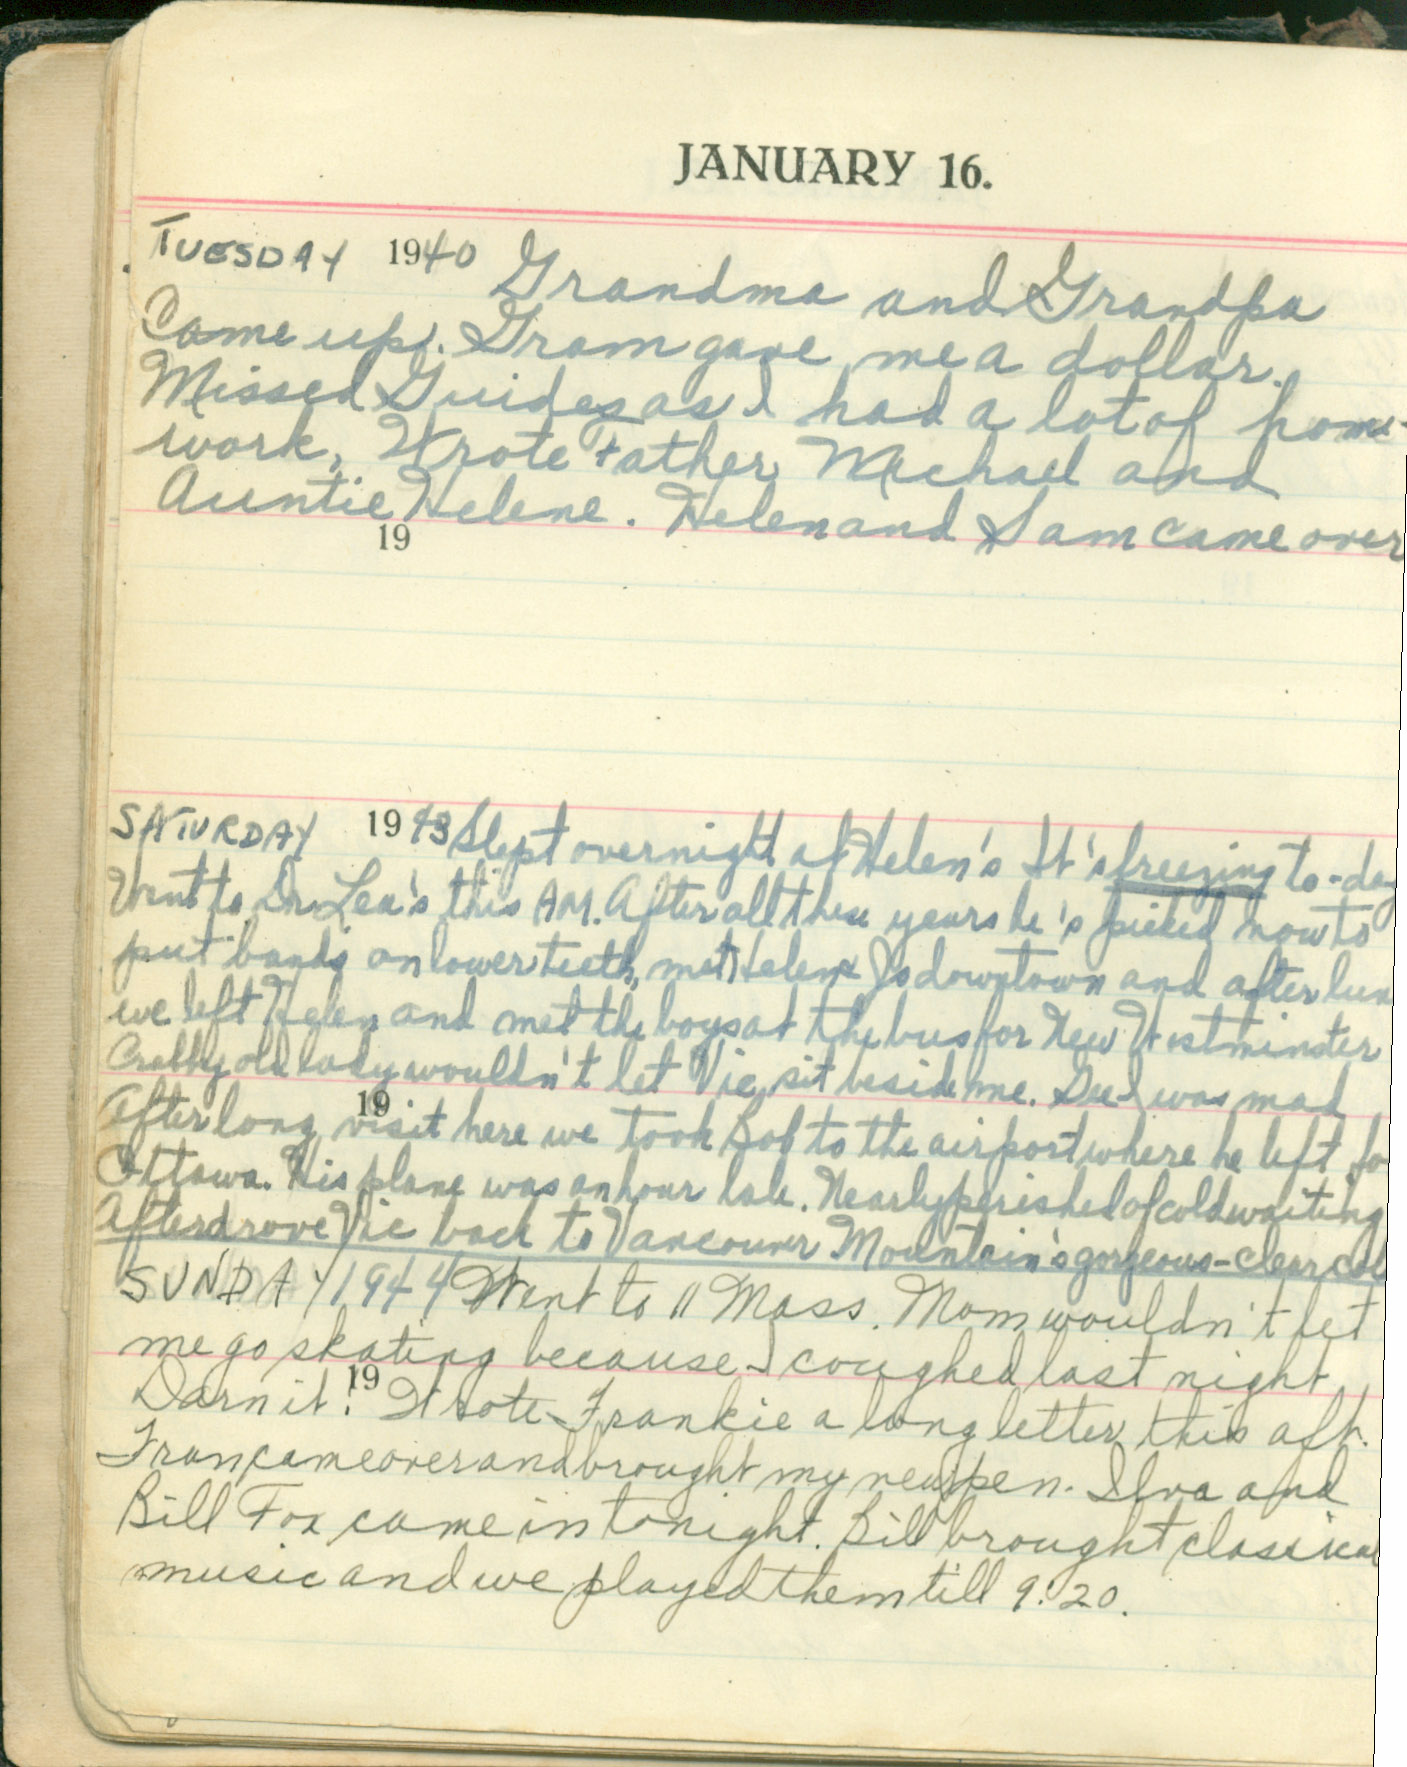 JANUARY 16.
TUESDAY 1940 Grandma and Grandpa
Came up. Gram gave me a dollar.
Missed Guides as I had a lot of home-
work, Wrote Father Michael and
Auntie Helene. Helen and Sam came over
19
SATURDAY 1943 Slept overnight at Helen's It's freezing to-day
Went to Dr. Lea's this A.M. After all these years he's picked now to
put bands on lower teeth, met Helen & Jo downtown and after lun
we left Helen and met the boys at the bus for New Westminster
Crabby old lady wouldn't let Vic sit beside me. Gee I was mad
19
After long visit here we took Bob to the airport where he left fo
Ottawa. His plane was an hour late. Nearly perished of cold waiting
After drove Vic back to Vancouver Mountain's gorgeous - clear col
SUNDAY 1944 Went to 11 Mass. Mom wouldn't let
me go skating because I coughed last night
19
Darn it! Wrote Frankie a long letter this aft.
Fran came over and brought my new pen. and
Bill Fox came in tonight. Bill brought classical
music and we played them till 9:20.